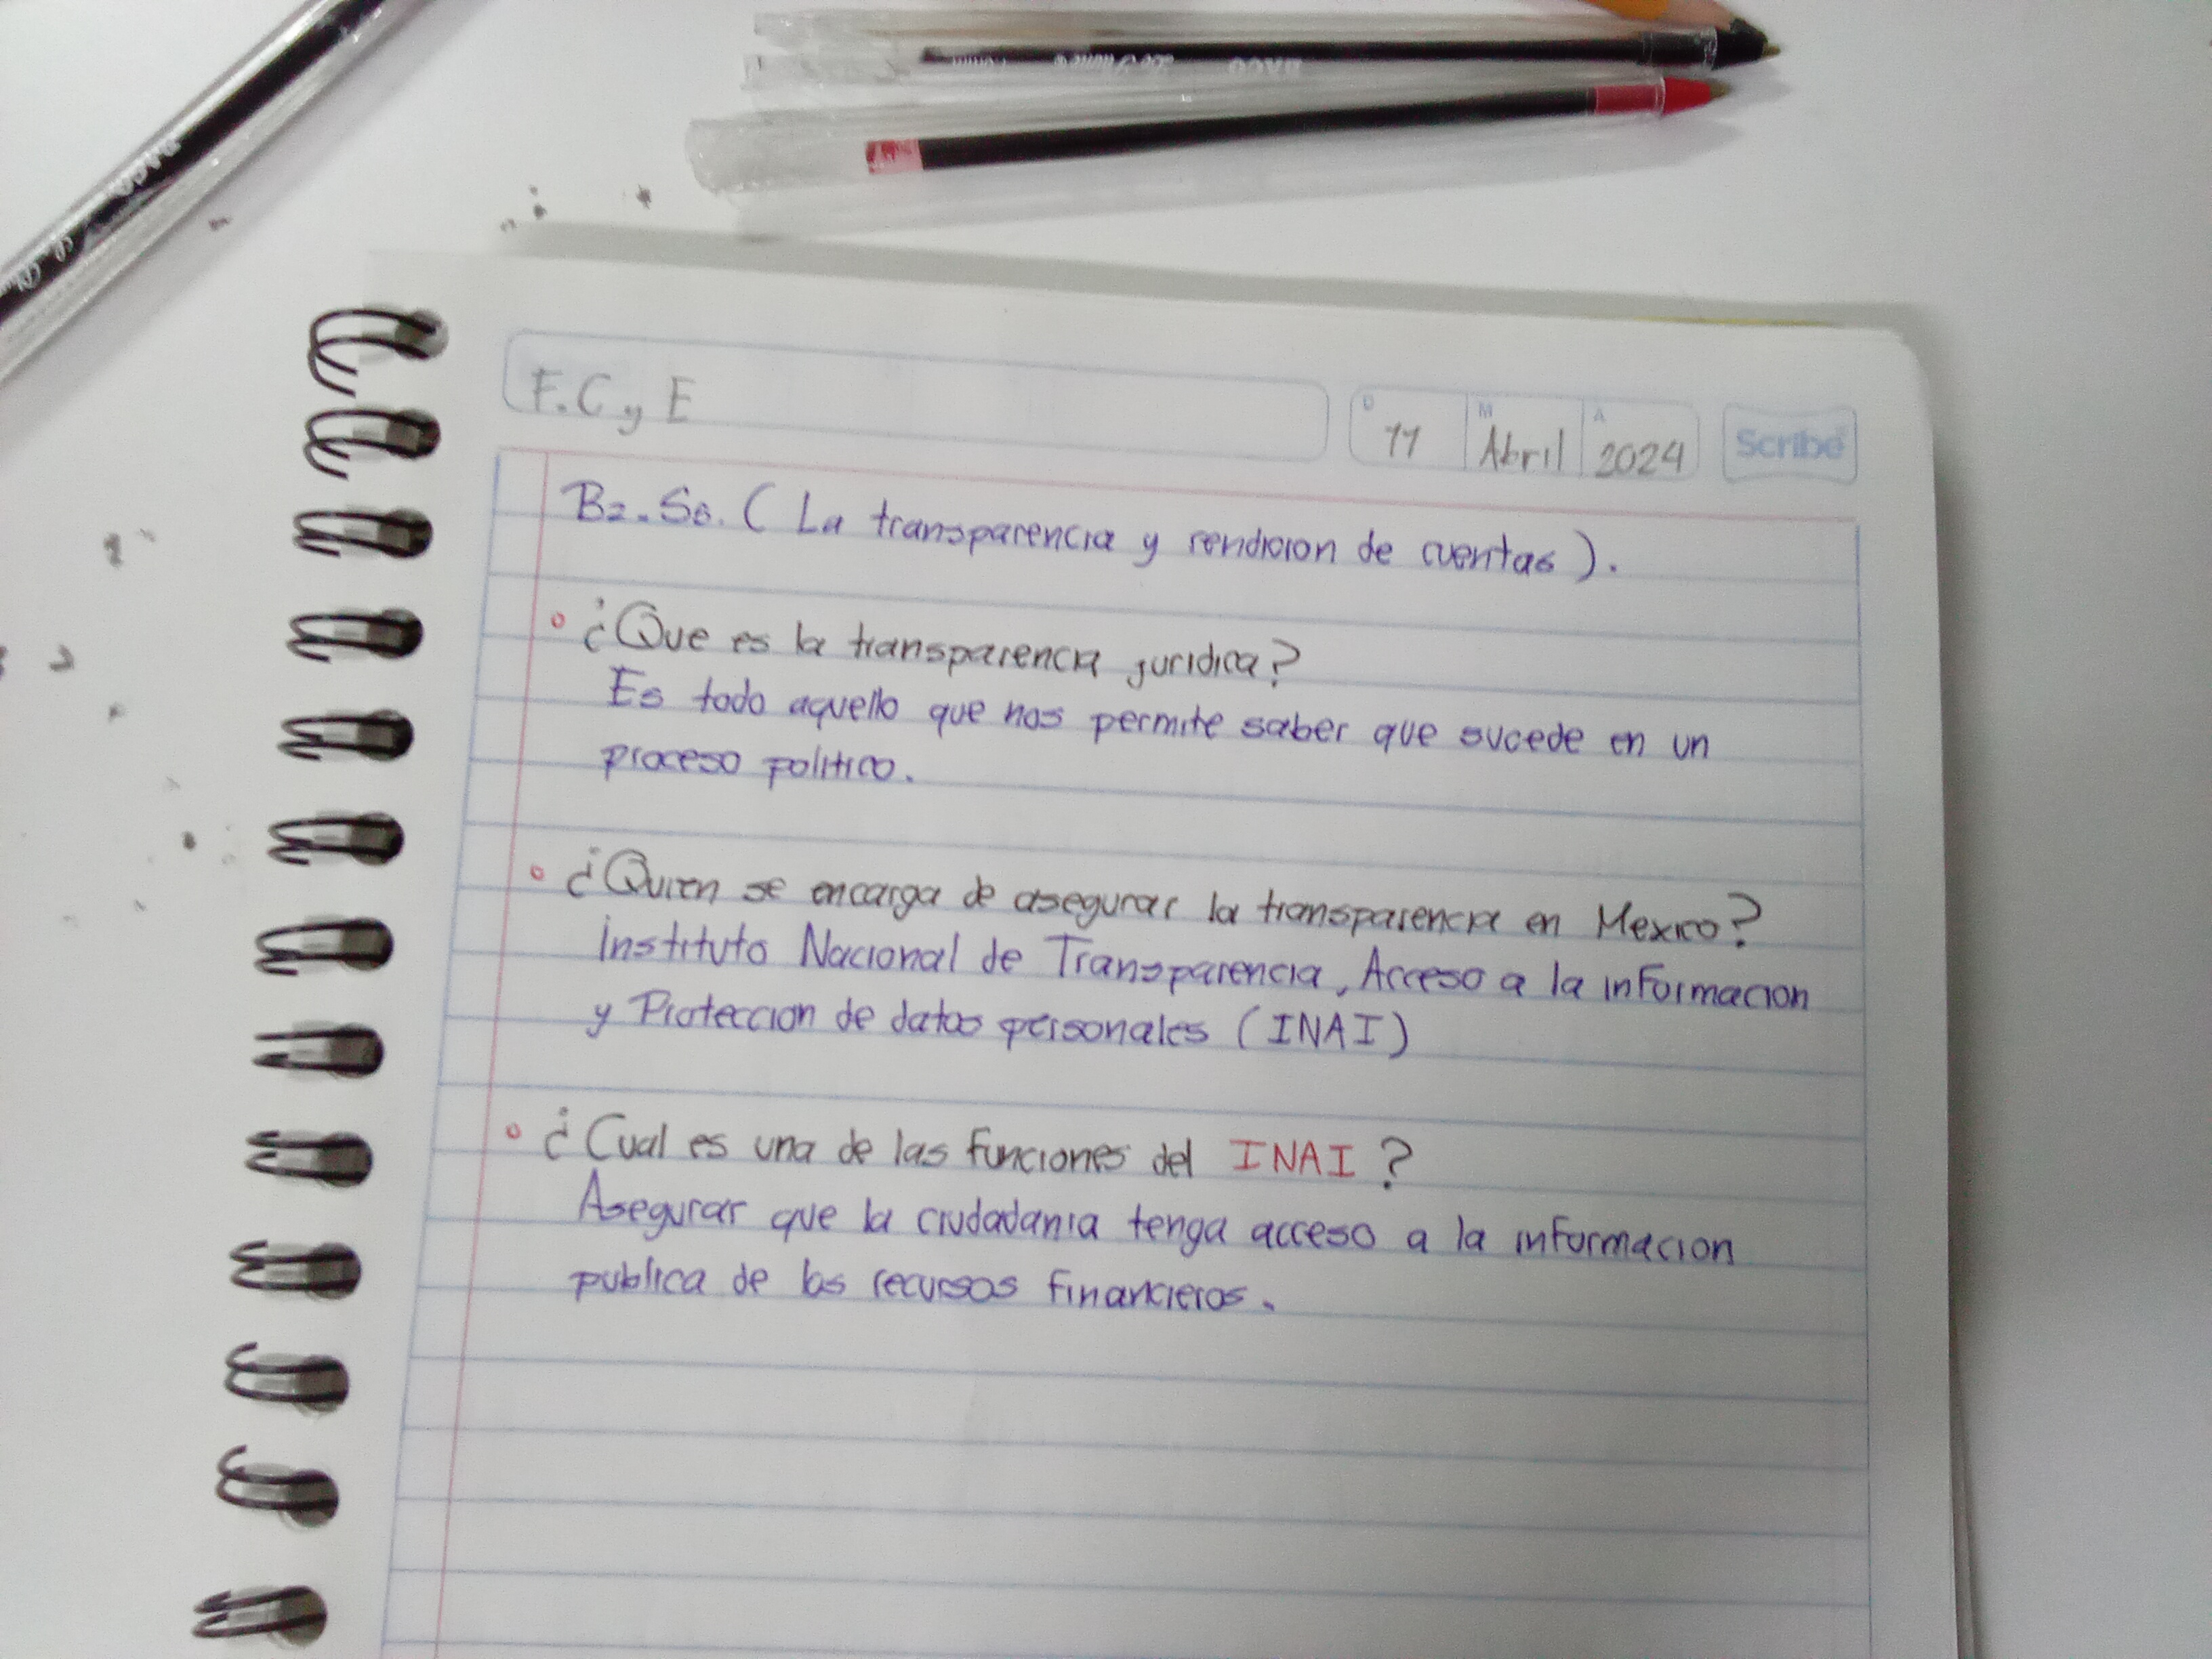 F.C y E
D 11 M Abril A 2024 Scribe
B2.S6. ( La transparencia y rendicion de cuentas ).
° ¿Que es la transparencia juridica?
Es todo aquello que nos permite saber que sucede en un
proceso politico.
° ¿Quien se encarga de asegurar la transparencia en Mexico?
Instituto Nacional de Transparencia, Acceso a la informacion
y Proteccion de datos personales (INAI)
° ¿Cual es una de las funciones del INAI?
Asegurar que la ciudadania tenga acceso a la informacion
publica de los recursos financieros.